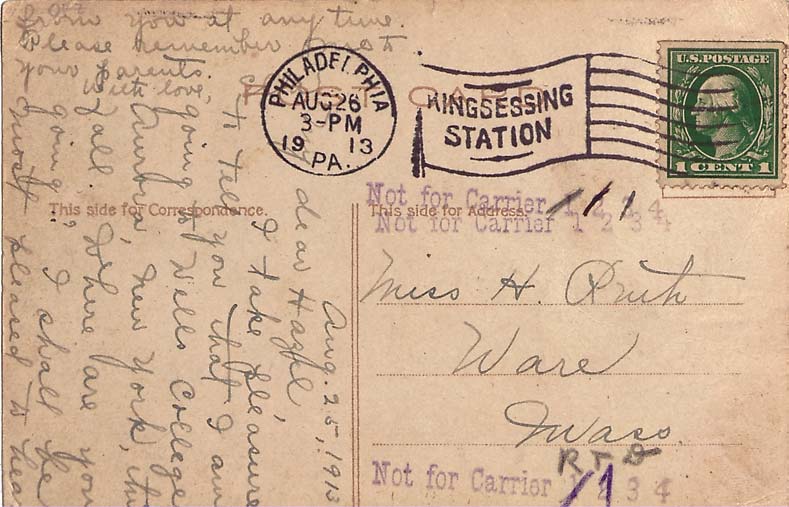 PHILADELPHIA
AUG 26
3-PM
1913
PA.
KINGSESSING
STATION
U.S. POSTAGE
1 CENT 1
POST CARD
This side for Correspondence.
This side for Address.
Not for Carrier 1 2 3 4
Not for Carrier 1 2 3 4
Miss H. Ruth
Ware
Mass.
Not for Carrier 1 2 3 4
Aug. 25, 1913
dear Hazel,
I take pleasure
to tell you that I am
going to Wells College
Aurora, New York, this
fall. Where are you
going, I shall be
most pleased to hear
from you at any time
Please remember me to
your parents.
With love,